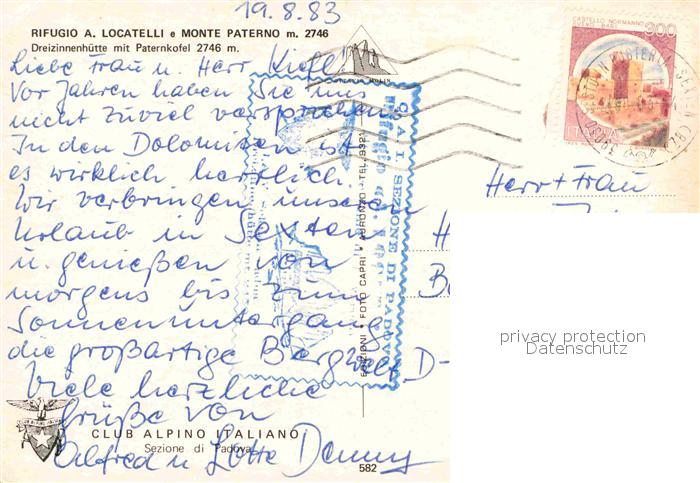 19.8.83
RIFUGIO A. LOCATELLI e MONTE PATERNO m. 2746
Dreizinnenhütte mit Paternkofel 2746 m.
Liebe Frau u. Herr
Vor Jahren haben Sie uns
nicht zuviel versprochen.
In den Dolomiten ist
es wirklich herrlich.
Wir verbringen unseren
Urlaub in Sexten
u. genießen von
morgens bis zum
Sonnenuntergang
die großartige Bergwelt.
Viele herzliche
Grüße von
Alfred u Lotte Denny
CLUB ALPINO ITALIANO
Sezione di Padova
582
C.A.I. SEZIONE DI PADOVA
EDIZIONI • FOTO CAPRI • AURONZO • TEL. 9321
CASTELLO NORMANNO
SVEVO - BARI
300
ITALIA
Herr + Frau
H
B
D-
privacy protection
Datenschutz